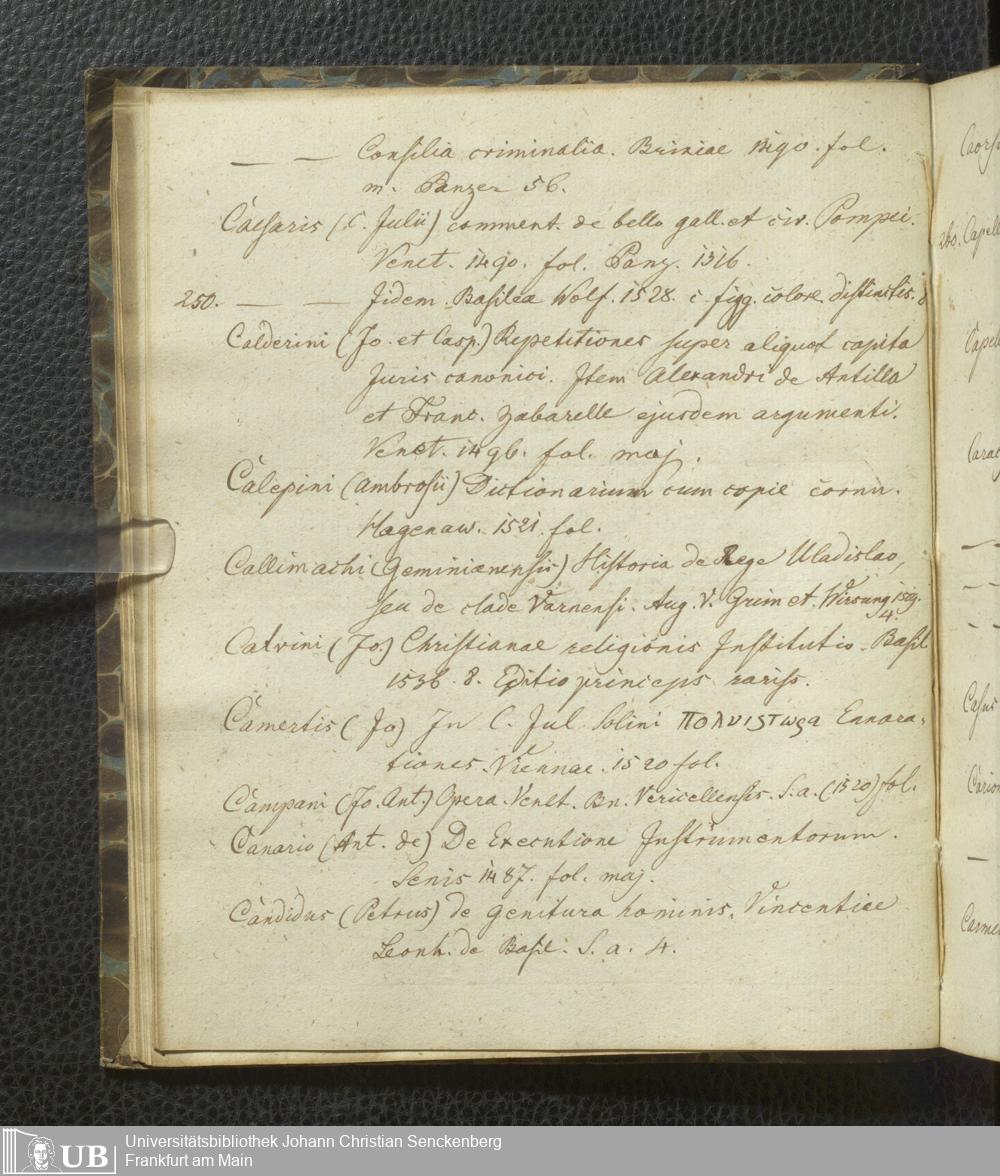 — — Consilia criminalia. Brixiae 1490. fol.
m. Panzer 56.
Caesaris (C. Julii) comment. de bello gall. et civ. Pompei.
Venet. 1490. fol. Panz. 1316.
250. — — Jidem Basilea Wolf. 1528. c. figg. colore distinctis. 8
Calderini (Jo. et Casp.) Repetitiones super aliquot capita
Juris canonici. Item Alexandri de Antilla
et Franc. Zabarelle ejusdem argumenti.
Venet. 1496. fol. maj.
Calepini (Ambrosii) Dictionarium cum copie cornu.
Hagenaw. 1521. fol.
Callimachi (Geminianensis) Historia de Rege Uladislao,
seu de clade Varnensi. Aug. V. Grim et. Wirsung 1519.
4.
Calvini (Jo.) Christianae religionis Institutio. Basil
1536. 8. Editio princeps rariss.
Camertis (Jo) In C. Jul. Solini Πολυιστωρα Ennara-
tiones. Viennae. 1520 fol.
Campani (Jo. Ant.) Opera. Venet. Bn. Vercellensis. S. a. (1520) fol.
Canario (Ant. de) De Executione Instrumentorum.
Senis 1487. fol. maj.
Candidus (Petrus) de genitura hominis. Vincentiae
Leonh. de Basil. S. a. 4.
260. Capell
Casus
Universitätsbibliothek Johann Christian Senckenberg
Frankfurt am Main
UB